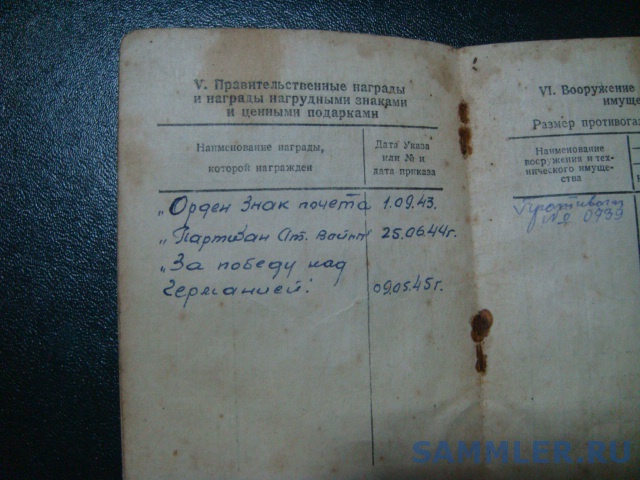 V. Правительственные награды
и награды нагрудными знаками
и ценными подарками
Наименование награды,
которой награжден
Дата Указа
или № и
дата приказа
„Орден Знак почета 1.09.43.
„Партизан От. войны 25.06.44г.
„За победу над
Германией! 09.05.45г.
VI. Вооружение
имуще
Размер противогаз
Наименование
вооружения и тех-
нического имуще-
ства
Противогаз
№ 0739
SAMMLER.RU